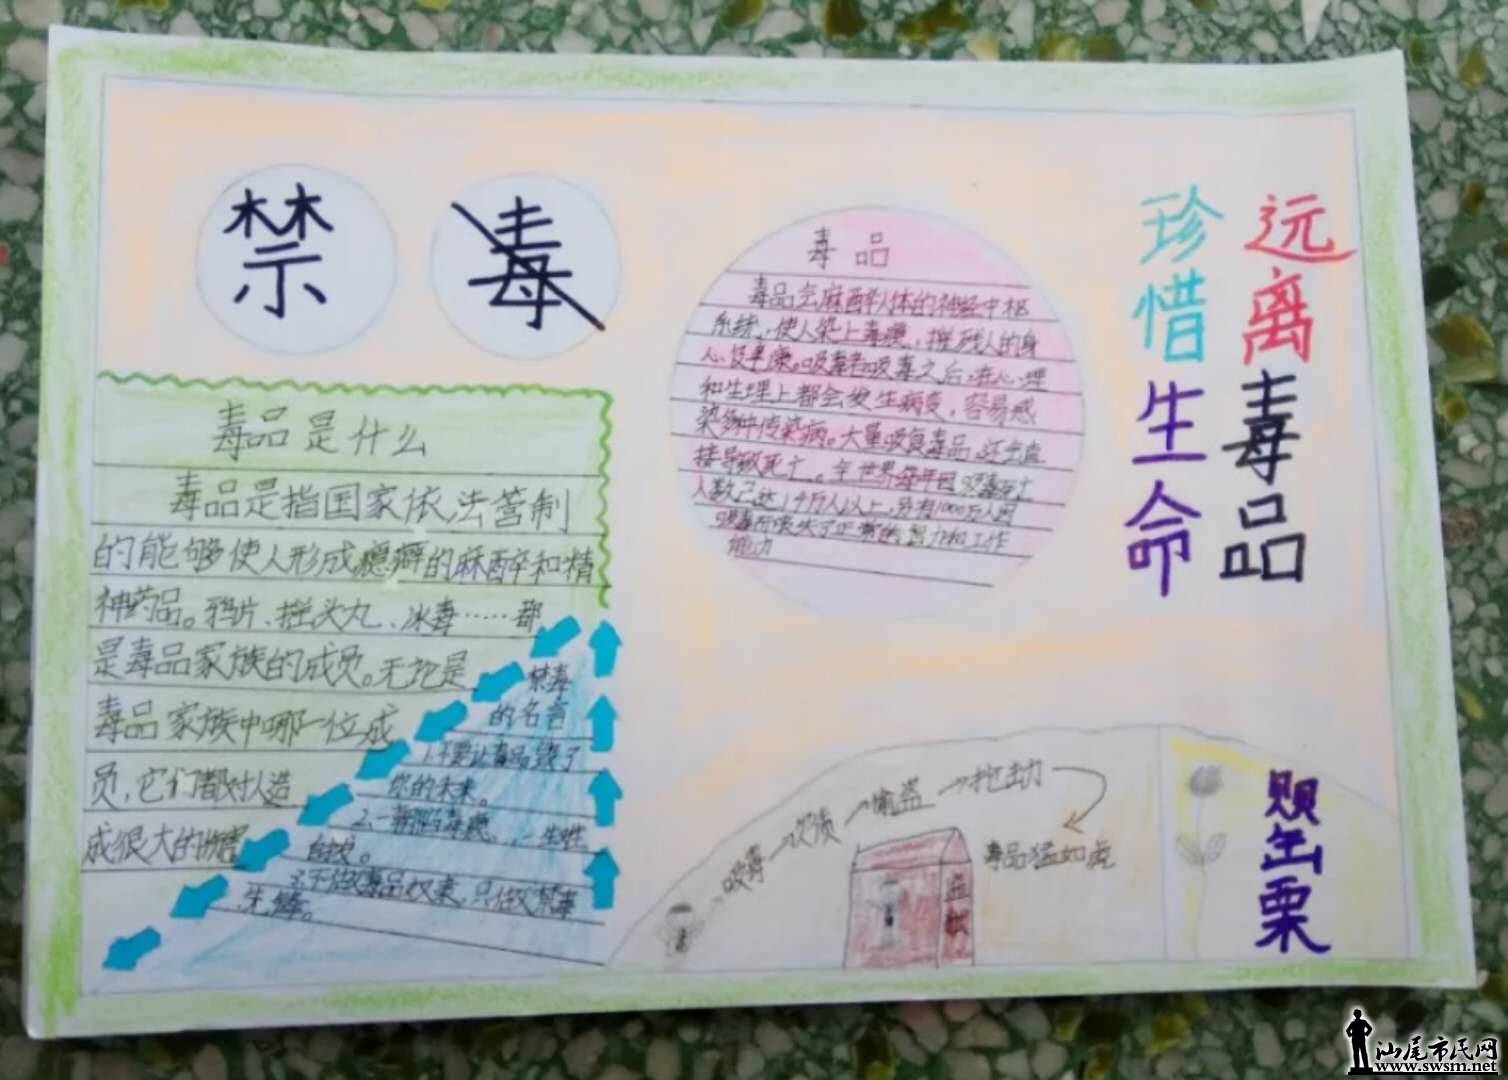 禁 毒
毒品是什么
毒品是指国家依法管制
的能够使人形成瘾癖的麻醉和精
神药品。鸦片、摇头丸、冰毒……都
是毒品家族的成员。无论是
毒品家族中哪一位成
员,它们都对人造
成很大的伤害
禁毒
的名言
1.不要让毒品毁了
你的未来。
2.一朝陷毒瘾,一生难
自拔。
3.不做毒品奴隶,只做禁毒
先锋。
毒品
毒品会麻醉人体的神经中枢
系统,使人染上毒瘾,摧残人的身
心健康。吸毒者吸毒之后,在心理
和生理上都会发生病变,容易感
染多种传染病。大量吸食毒品,还会直
接导致死亡。全世界每年因吸毒死亡
人数已达10万人以上,另有1000万人因
吸毒而丧失了正常的智力和工作
能力
远离毒品
珍惜生命
吸毒→欠债→偷盗→抢劫
毒品猛如虎
罂粟
汕尾市民网
www.swsm.net